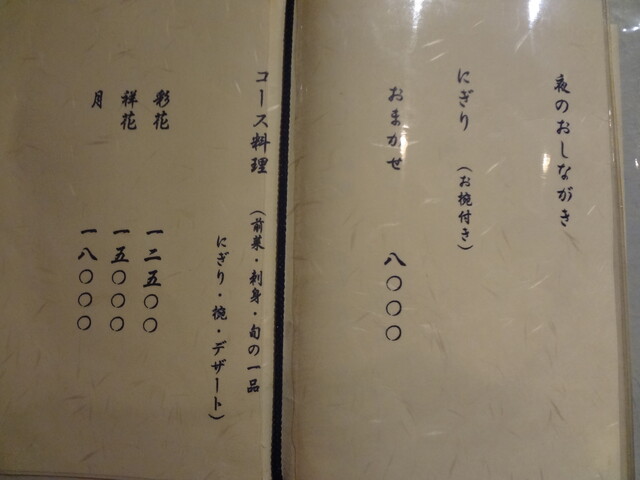 夜のおしながき
にぎり （お椀付き）
おまかせ 八〇〇〇
コース料理 （前菜・刺身・旬の一品
にぎり・椀・デザート）
彩花 一二五〇〇
祥花 一五〇〇〇
月 一八〇〇〇